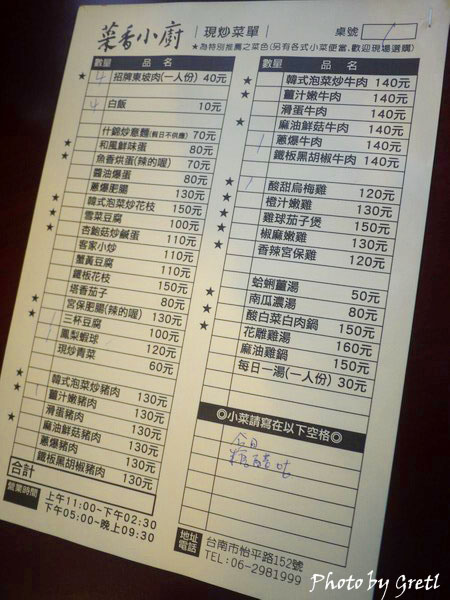 菜香小廚 | 現炒菜單 | 桌號 1
★為特別推薦之菜色(另有各式小菜便當.歡迎現場選購)
數量 品名
4 招牌東坡肉(一人份) 40元
4 白飯 10元
什錦炒意麵(假日不供應) 70元
和風鮮味蛋 80元
魚香烘蛋(辣的喔) 70元
醬油爆蛋 80元
蔥爆肥腸 130元
韓式泡菜炒花枝 150元
雪菜豆腐 100元
杏鮑菇炒鹹蛋 110元
客家小炒 110元
蟹黃豆腐 110元
鐵板花枝 150元
塔香茄子 80元
宮保肥腸(辣的喔) 130元
三杯豆腐 100元
鳳梨蝦球 120元
現炒青菜 60元
韓式泡菜炒豬肉 130元
薑汁嫩豬肉 130元
滑蛋豬肉 130元
麻油鮮菇豬肉 130元
蔥爆豬肉 130元
鐵板黑胡椒豬肉 130元
合計
營業時間 上午11:00~下午02:30
下午05:00~晚上09:30
數量 品名
韓式泡菜炒牛肉 140元
薑汁嫩牛肉 140元
滑蛋牛肉 140元
麻油鮮菇牛肉 140元
蔥爆牛肉 140元
鐵板黑胡椒牛肉 140元
酸甜烏梅雞 120元
橙汁嫩雞 130元
雞球茄子煲 150元
椒麻嫩雞 130元
香辣宮保雞 120元
蛤蜊薑湯 50元
南瓜濃湯 80元
酸白菜白肉鍋 150元
花雕雞湯 160元
麻油雞鍋 150元
每日一湯(一人份) 30元
◎小菜請寫在以下空格◎
地址 台南市怡平路152號
電話 TEL:06-2981999
Photo by Gretl